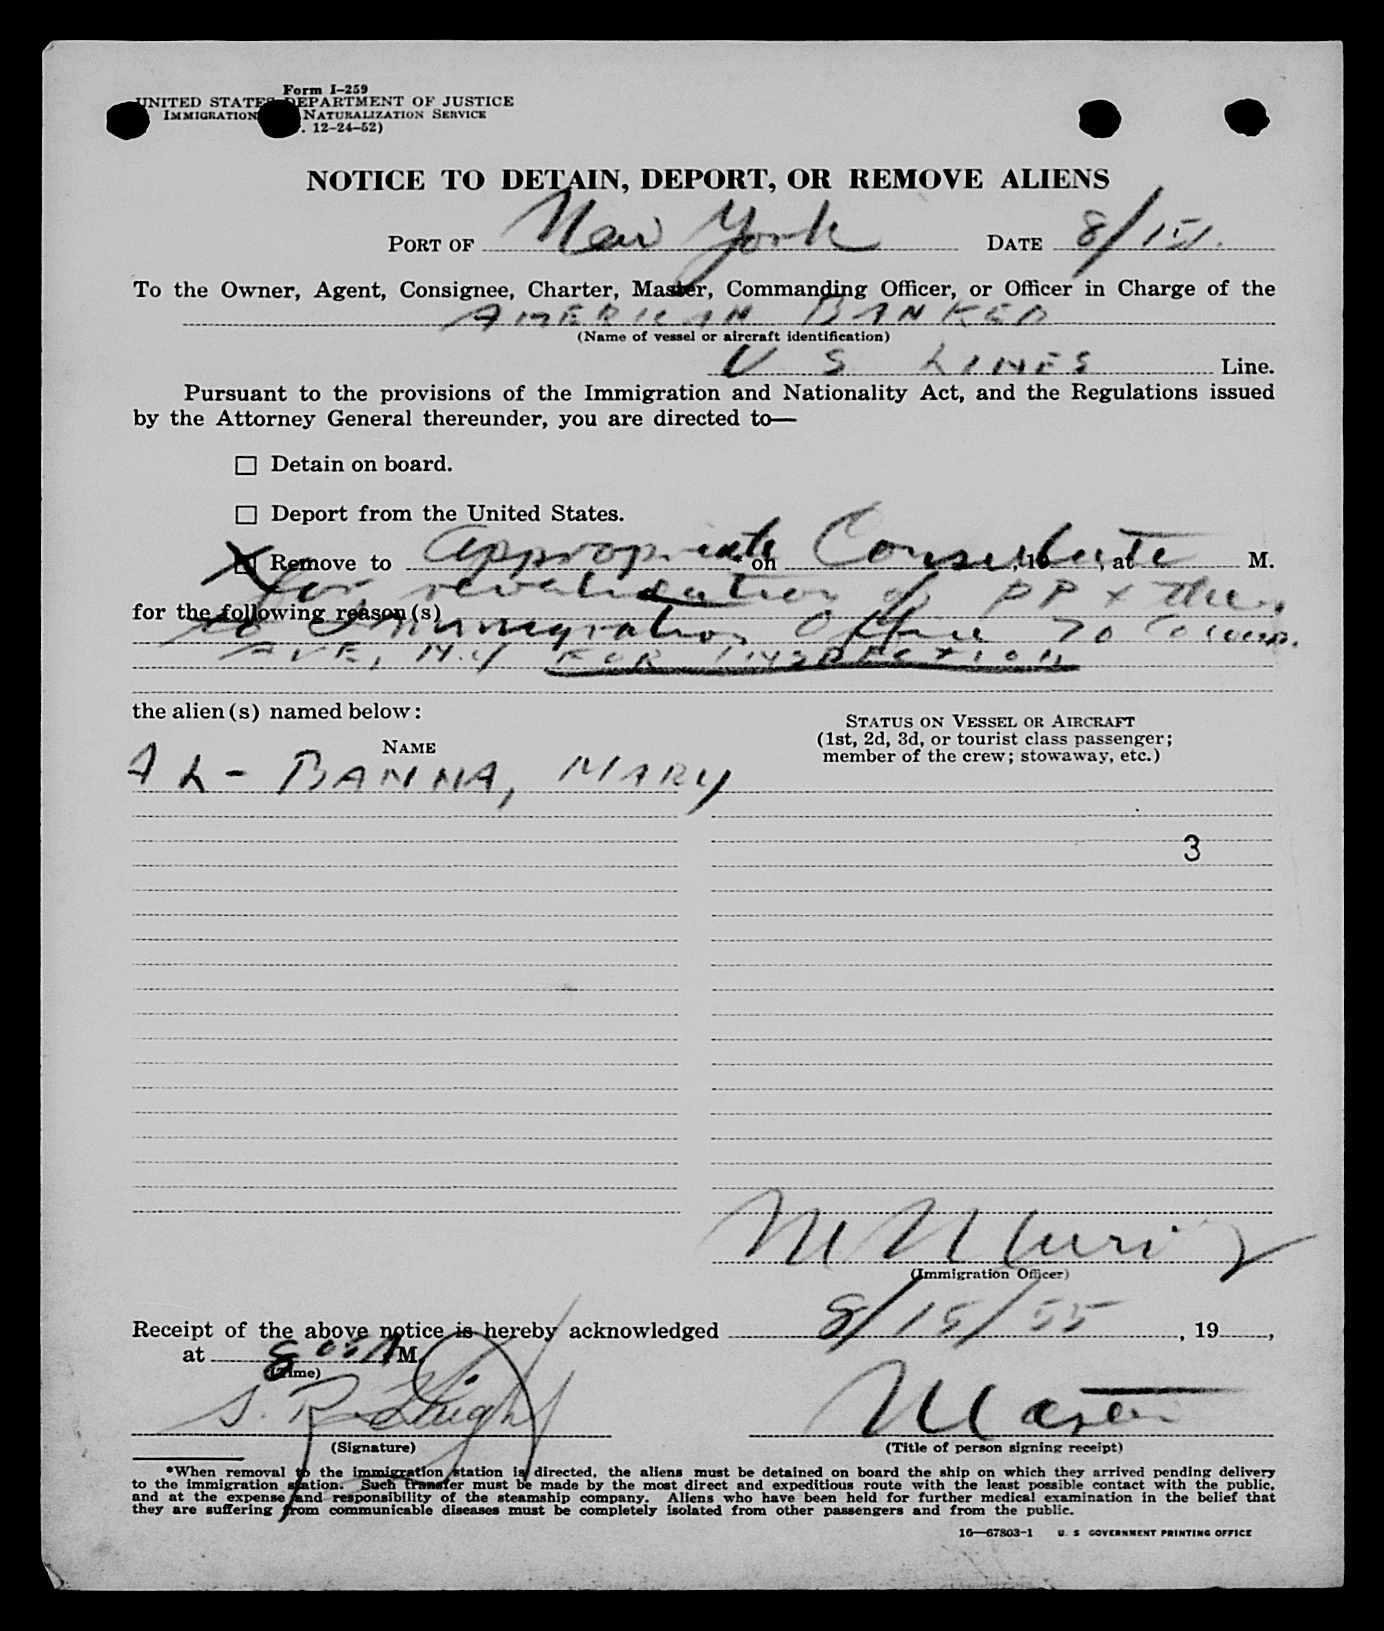 Form I-259
UNITED STATES DEPARTMENT OF JUSTICE
IMMIGRATION NATURALIZATION SERVICE
. 12-24-52)
NOTICE TO DETAIN, DEPORT, OR REMOVE ALIENS
PORT OF New York DATE 8/15/.
To the Owner, Agent, Consignee, Charter, Master, Commanding Officer, or Officer in Charge of the
AMERICAN BANKER
(Name of vessel or aircraft identification)
U S LINES Line.
Pursuant to the provisions of the Immigration and Nationality Act, and the Regulations issued
by the Attorney General thereunder, you are directed to—
☐ Detain on board.
☐ Deport from the United States.
X Remove to appropriate on Consulate, 19, at M.
for revalidation of PP + then
for the following reason(s)
to Immigration Office 70 Colump.
AVE, N.Y FOR INSPECTION
the alien(s) named below:
NAME
STATUS ON VESSEL OR AIRCRAFT
(1st, 2d, 3d, or tourist class passenger;
member of the crew; stowaway, etc.)
AL-BANNA, MARY
3
(Immigration Officer)
Receipt of the above notice is hereby acknowledged 8/15/55, 19, 
at 8 00 A M.
(Time)
S. R. Master
(Signature) (Title of person signing receipt)
*When removal to the immigration station is directed, the aliens must be detained on board the ship on which they arrived pending delivery
to the immigration station. Such transfer must be made by the most direct and expeditious route with the least possible contact with the public,
and at the expense and responsibility of the steamship company. Aliens who have been held for further medical examination in the belief that
they are suffering from communicable diseases must be completely isolated from other passengers and from the public.
16—67803-1 U. S GOVERNMENT PRINTING OFFICE